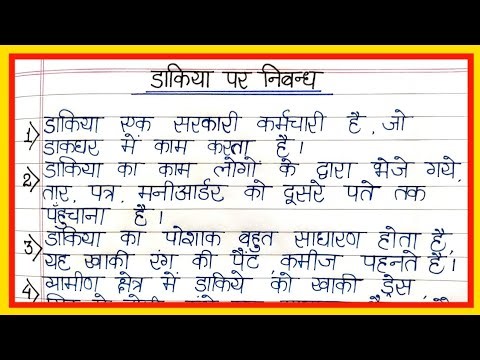 डाकिया पर निबन्ध
1) डाकिया एक सरकारी कर्मचारी है, जो
डाकघर में काम करता है।
2) डाकिया का काम लोगो के द्वारा भेजे गये,
तार, पत्र, मनीआर्डर को दूसरे पते तक
पहुँचाना है।
3) डाकिया का पोशाक बहुत साधारण होता है,
यह खाकी रंग की पैंट, कमीज पहनते है।
4) ग्रामीण क्षेत्र में डाकिये को खाकी ड्रेस,